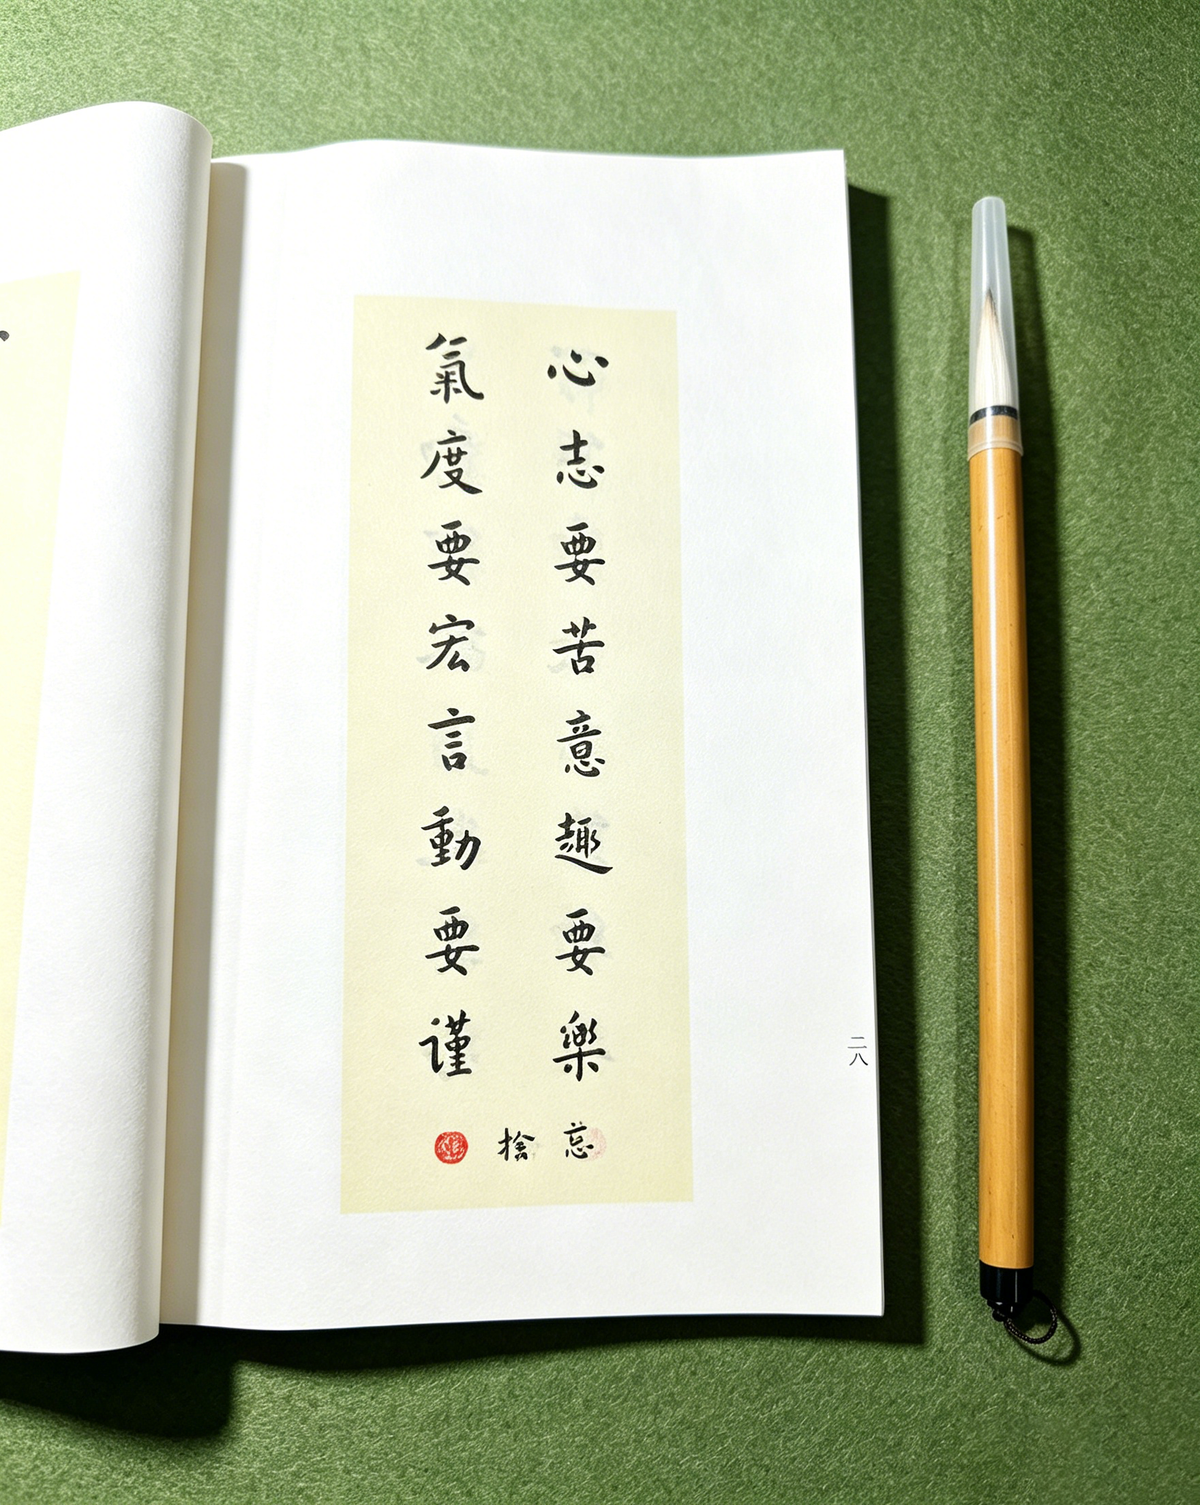 心志要苦意趣要樂
氣度要宏言動要谨
二八